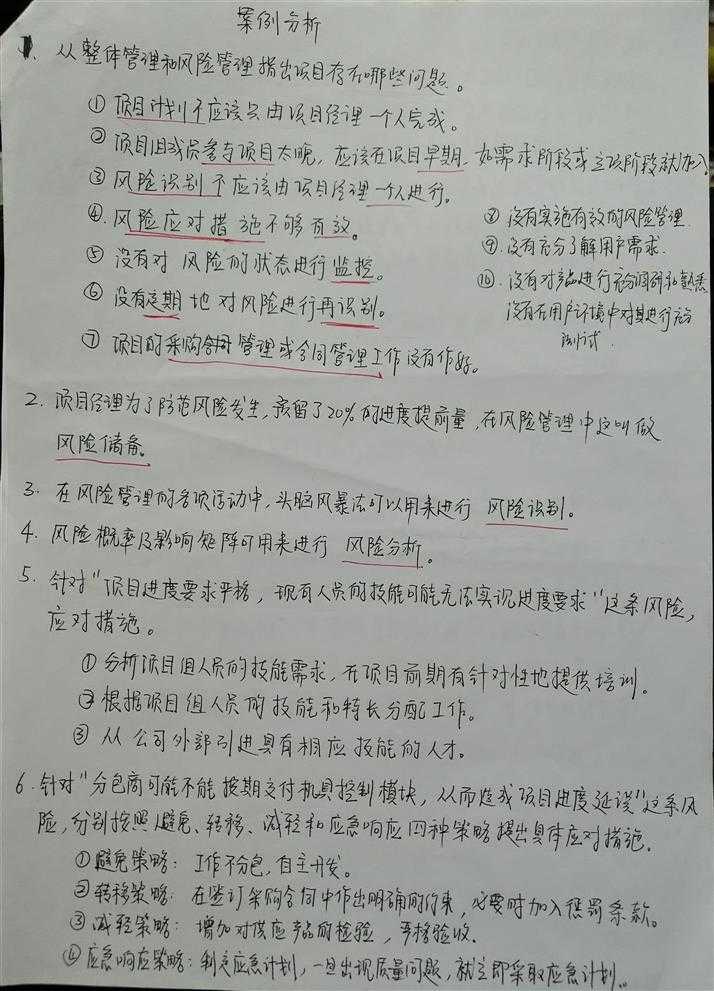 案例分析
1. 从整体管理和风险管理指出项目存在哪些问题。
① 项目计划不应该只由项目经理一个人完成。
② 项目组成员参与项目太晚，应该在项目早期，如需求阶段或立项阶段就加入
③ 风险识别不应该由项目经理一个人进行。
④. 风险应对措施不够有效。
⑤ 没有对风险的状态进行监控。
⑥ 没有定期地对风险进行再识别。
⑦ 项目的采购合同管理或合同管理工作没有作好。
⑧ 没有实施有效的风险管理.
⑨. 没有充分了解用户需求.
⑩. 没有对产品进行充分调研和熟悉
没有在用户环境中对其进行充分
测试.
2. 项目经理为了防范风险发生，预留了20%的进度提前量，在风险管理中这叫做
风险储备。
3. 在风险管理的各项活动中，头脑风暴法可以用来进行 风险识别。
4. 风险概率及影响矩阵可用来进行 风险分析。
5. 针对"项目进度要求严格，现有人员的技能可能无法实现进度要求"这条风险，
应对措施。
① 分析项目组人员的技能需求，在项目前期有针对性地提供培训。
② 根据项目组人员的技能和特长分配工作。
③ 从公司外部引进具有相应技能的人才。
6. 针对"分包商可能不能按期交付机具控制模块，从而造成项目进度延误"这条风
险，分别按照避免、转移、减轻和应急响应四种策略提出具体应对措施.
① 避免策略：工作不分包，自主开发。
② 转移策略：在签订采购合同中作出明确的约束，必要时加入惩罚条款。
③ 减轻策略：增加对供应产品的检验，严格验收.
④ 应急响应策略：制定应急计划，一旦出现质量问题，就立即采取应急计划。